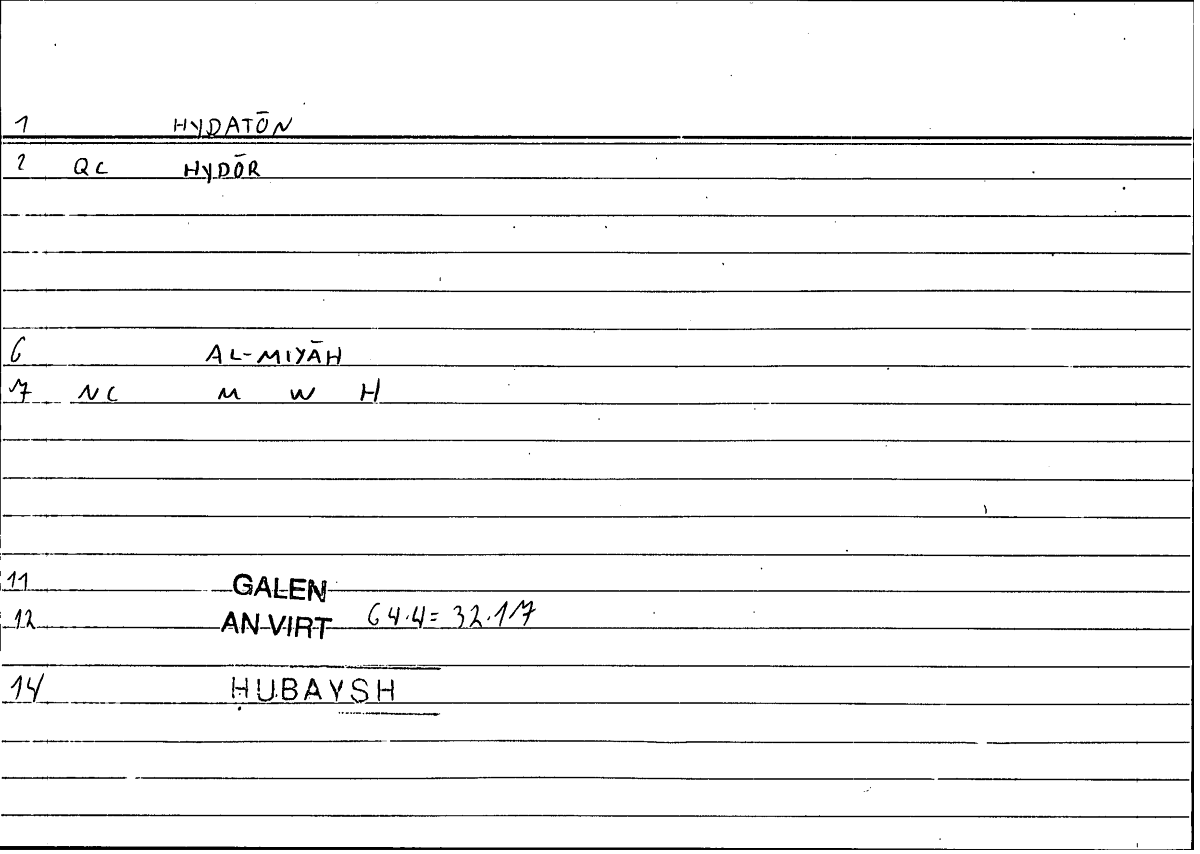 1 HYDATŌN
2 QC HYDŌR
6 AL-MIYĀH
7 NC M W H
11 GALEN
12 AN VIRT 64.4= 32.17
14 ḤUBAYSH